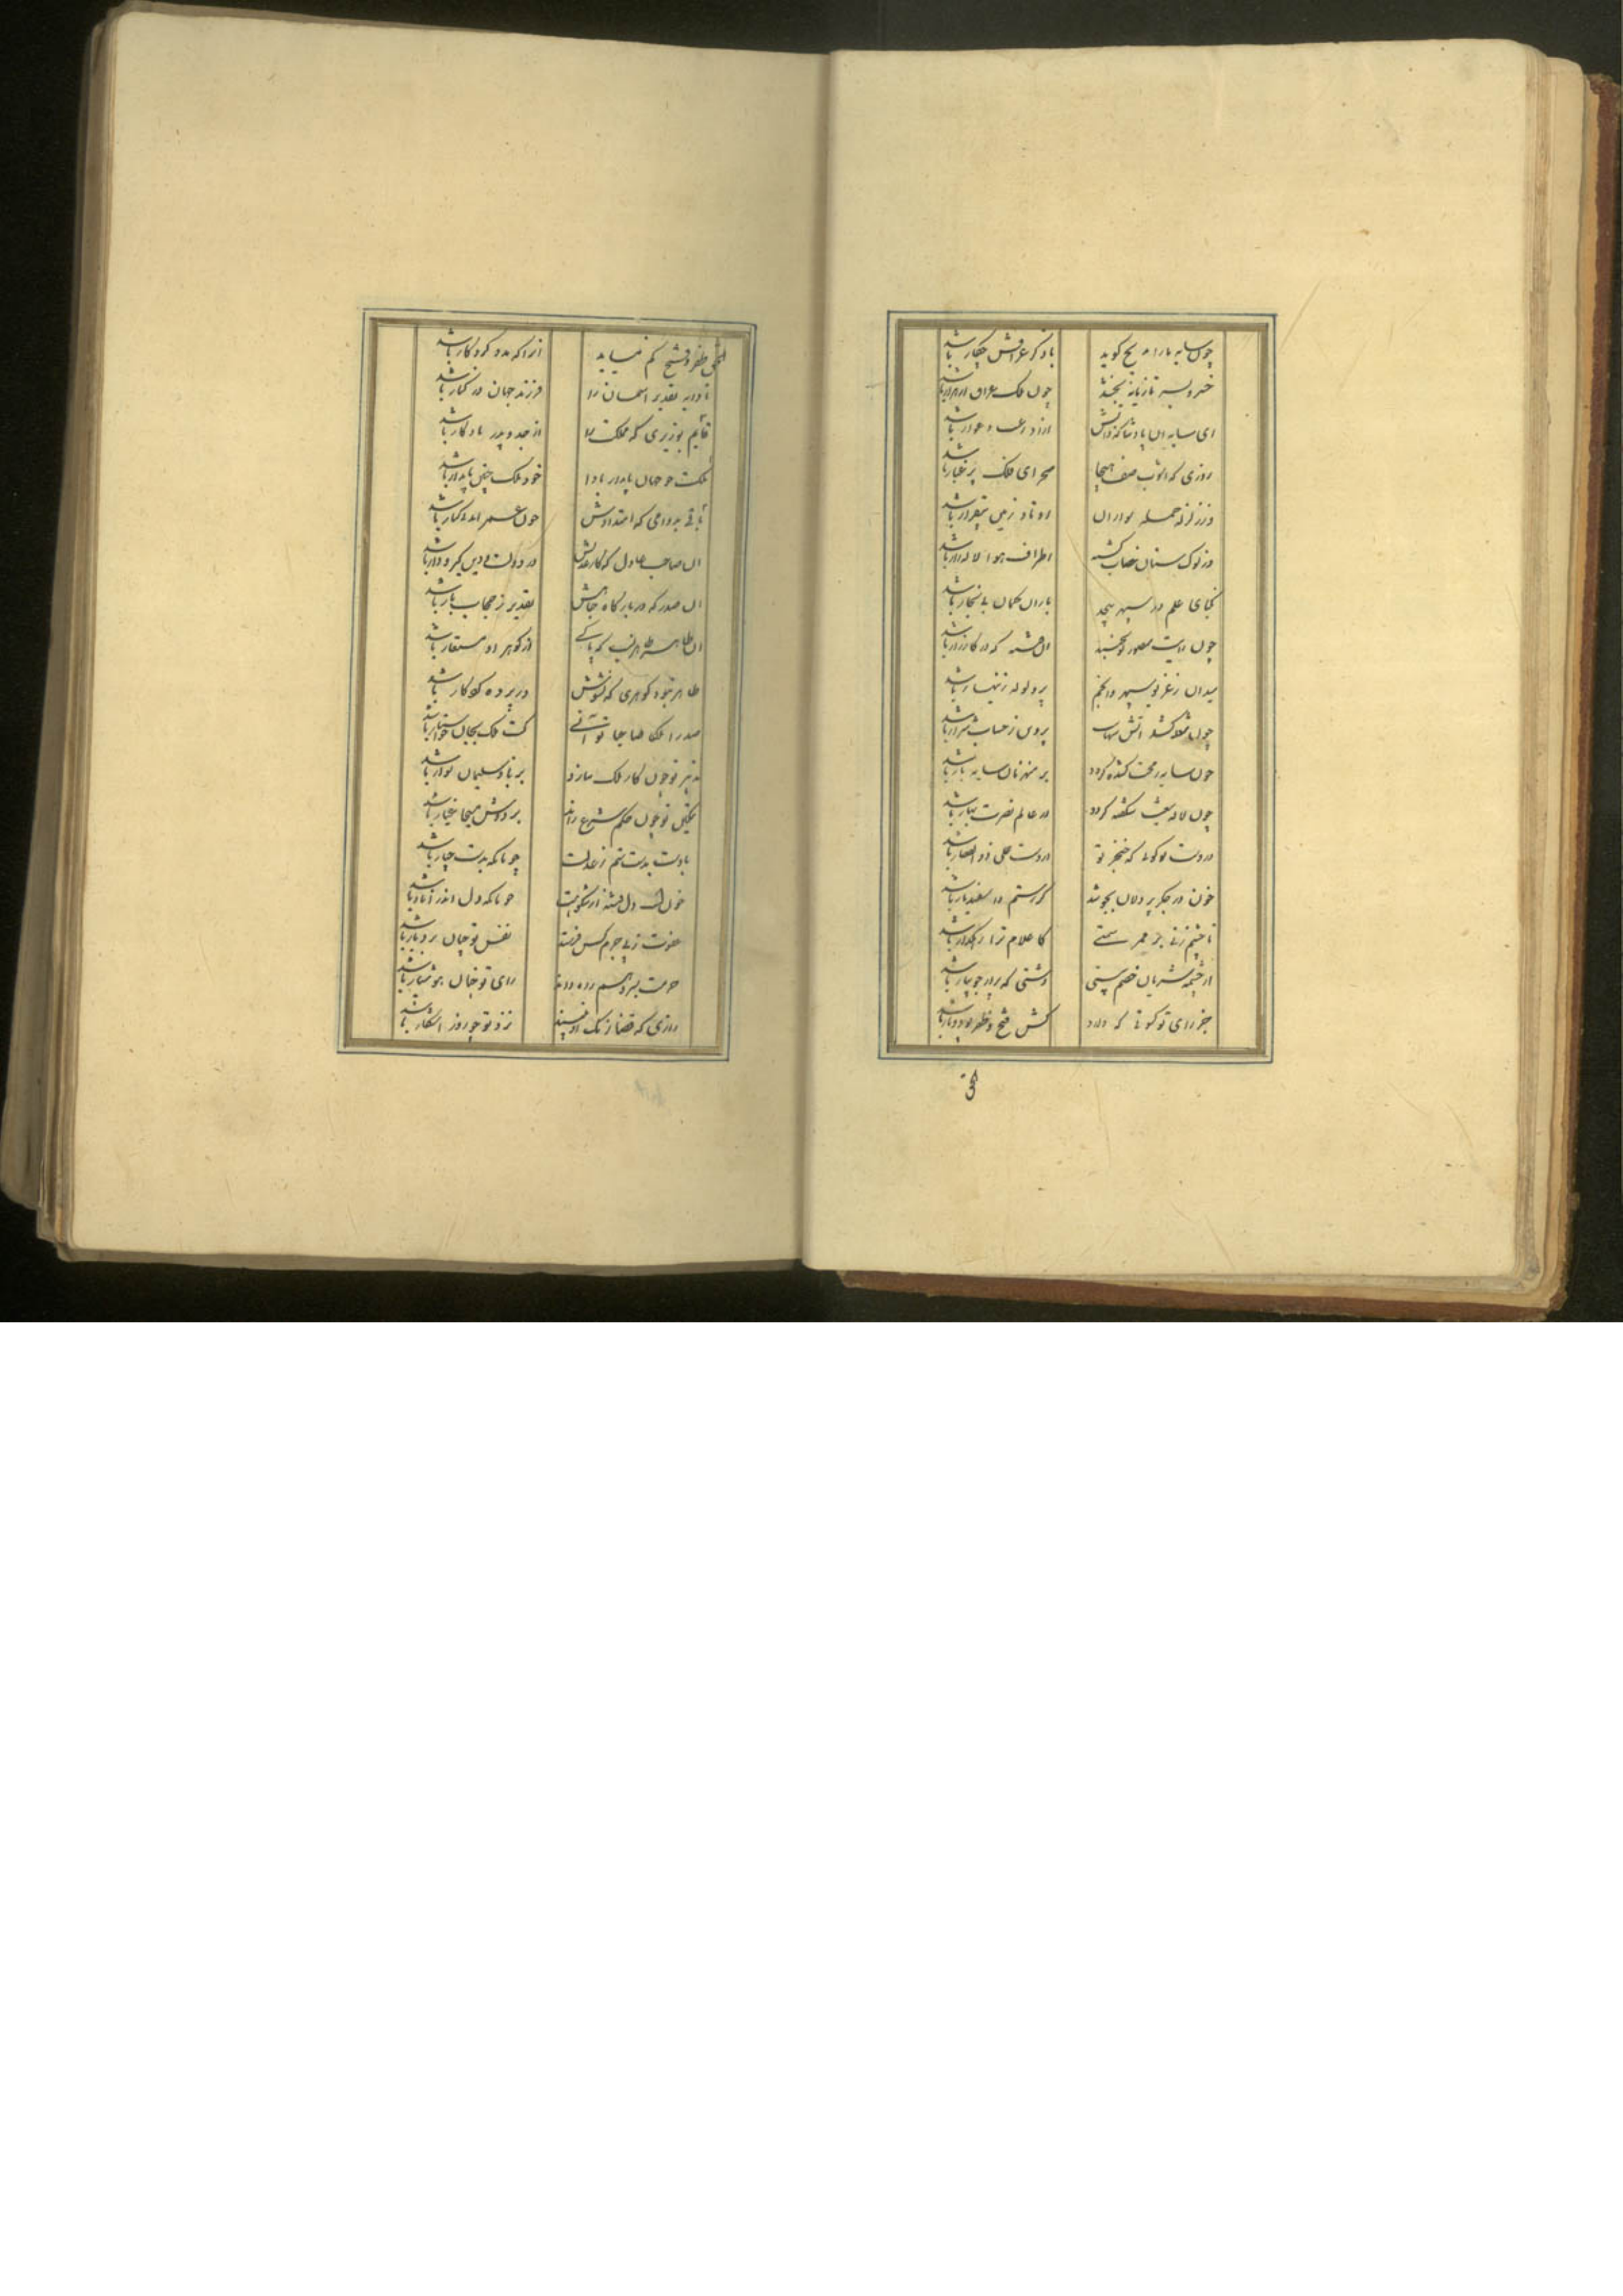 چون سایه ما را مدیح گوید	با ذکر عراقش چکار باشد
خسرو بسر تازیانه بخشد	چون ملک عراق ار هزار باشد
ای سایه آن پادشا که ذاتش	آزاد ز عیب و عوار باشد
روزی که ز آشوب صف هیجا	صحرای فلک پر غبار باشد
وز زلزله حمله سواران	اوتاد زمین بیقرار باشد
وز نوک سنان خضاب گشته	اطراف هوا لاله زار باشد
نکبای علم در سپهر پیچد	باران کمان بی بخار باشد
چون رایت منصور تو بجنبد	ان فتنه که در کارزار باشد
میدان ز غریو سپهر و انجم	پر ولوله زینهار باشد
چون شعله کشد آتش شهابت	پروین ز حساب شرار باشد
چون سایه رمحت کشیده گردد	بر منهزمان سایه بار باشد
چون لاله تیغت شکفته گردد	در عالم نصرت بهار باشد
در دست تو گویند که خنجر تو	در دست علی ذوالفقار باشد
خون در جگر پردلان بجوشد	گر رستم و اسفندیار باشد
تا چشم زنی بر ممر سمتی	کاعلام ترا رهگذار باشد
از چشمه شریان خصم بینی	دشتی که پر از جویبار باشد
جز رای تو که دارد	کش فتح و ظفر پود و تار باشد
الحق ظفر و فتح کم نیاید	آنرا که مدد کردگار باشد
تا دایه تقدیر آسمان را	فرزند جهان در کنار باشد
قایم بوزیری که مملکت را	از جد و پدر یادگار باشد
ملکت چو جهان پایدار بادا	خود ملک چنین پایدار باشد
باقی بدوامی که امتدادش	چون عمر ابد بیکنار باشد
آن صاحب عادل که کار عدلش	در دولت و دین گیر و دار باشد
آن صدر که در بارگاه جاهش	تقدیر ز حجاب بار باشد
آن طاهر طاهر نسب که پاکی	از گوهر او مستعار باشد
طاهر نبود گوهری که نشوش	در پرده کردگار باشد
صدرا ملکا صاحبا تو آنی	کت ملک بجان خواستار باشد
تدبیر تو چون کار ملک سازد	بر باد سلیمان سوار باشد
تمکین تو چون حکم شرع راند	بر دوش مسیحا غیار باشد
بادست بدست ستم ز عدلت	چونانکه بدست چنار باشد
خونست دل فتنه از شکوهت	چونانکه دل اندر انار باشد
عفوت ز پی جرم کس فرستد	نفس تو چنان بردبار باشد
حزمت بسر وهم راه داند	رای تو چنان هوشیار باشد
رازی که قضا رنگ او نبیند	نزد تو چو روز آشکار باشد